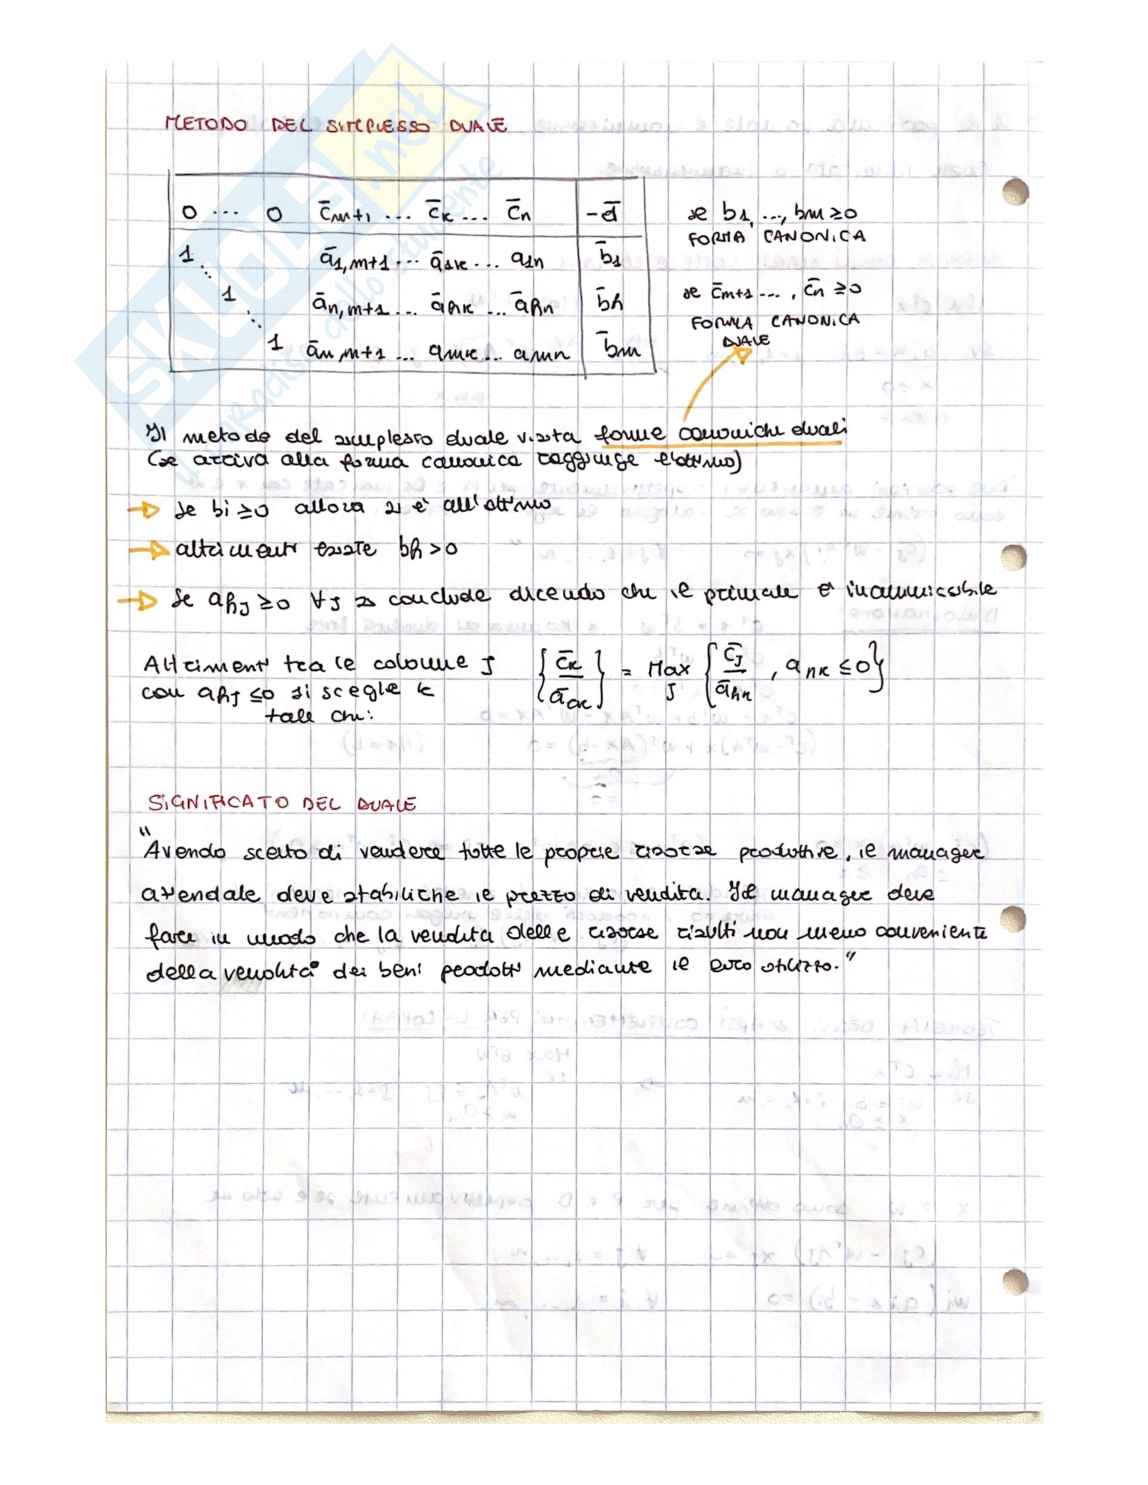 METODO DEL SIMPLESSO DUALE
0 ... 0 c̄m+1 ... c̄k ... c̄n -d̄
1 ā1,m+1 ... ā1k ... a1n b̄1
1 ān,m+1 ... āhk ... āhn b̄h
1 ām,m+1 ... amk ... amn b̄m
se b1, ..., bm ≥0
FORMA CANONICA
se c̄m+1 ... , c̄n ≥0
FORMA CANONICA
DUALE
Il metodo del simplesso duale visita forme canoniche duali
(se arriva alla forma canonica raggiunge l'ottimo)
→ se bi ≥0 allora si è all'ottimo
→ altrimenti esiste bh >0
→ se ahj ≥0 ∀j si conclude dicendo che il primale è inammissibile
Altrimenti tra le colonne j
con ahj ≤0 si sceglie k
tale che:
{ c̄k / āok } = Max j { c̄j / āhn , ank ≤0 }
SIGNIFICATO DEL DUALE
"Avendo scelto di vendere tutte le proprie risorse produttive, il manager
aziendale deve stabiliche il prezzo di vendita. Il manager deve
fare in modo che la vendita delle risorse risulti non meno conveniente
della vendita dei beni prodotti mediante il loro utilizzo."
SKUOLA.net